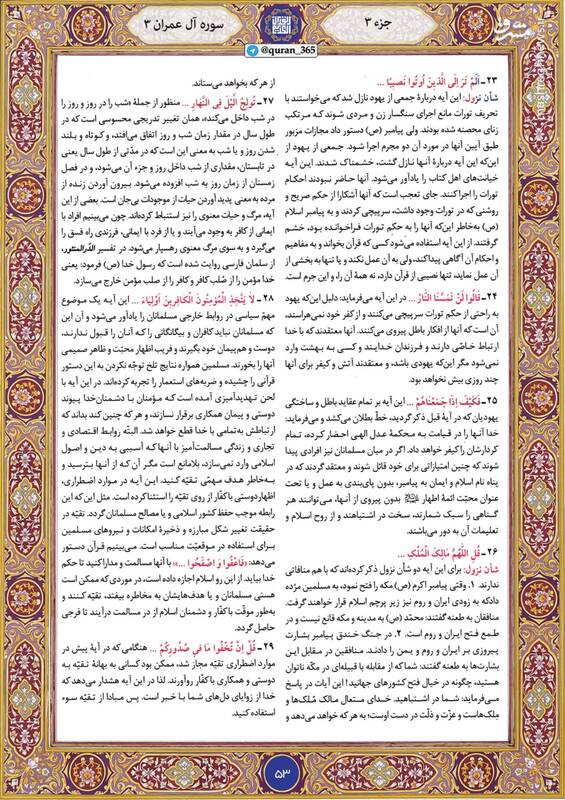 جزء ۳
سوره آل عمران ۳
@quran_365
مشرق
۲۳- اَلَمْ تَرَ اِلَی الَّذینَ اُوتُوا نَصیبًا ...
شأن نزول: این آیه دربارهٔ جمعی از یهود نازل شد که می‌خواستند با
تحریف تورات مانع اجرای سنگسار زن و مردی شوند که مرتکب
زنای محصنه شده بودند. ولی پیامبر (ص) دستور داد مجازات مزبور
طبق آیین آنها در مورد آن دو مجرم اجرا شود. جمعی از یهود از
این‌که این آیه دربارهٔ آنها نازل گشت، خشمناک شدند. این آیه
خیانت‌های اهل کتاب را یادآور می‌شود. آنها حاضر نبودند احکام
تورات را اجرا کنند. جای تعجب است که آنها آشکارا از حکم صریح و
روشنی که در تورات وجود داشت، سرپیچی کردند و به پیامبر اسلام
(ص) به‌خاطر این‌که آنها را به حکم تورات فراخوانده بود، خشم
گرفتند. از این آیه استفاده می‌شود کسی که قرآن بخواند و به مفاهیم
و احکام آن آگاهی پیدا کند، ولی به آن عمل نکند و یا تنها به بخشی از
آن عمل نماید، تنها نصیبی از قرآن دارد، نه همهٔ آن را، و این جرم است.
۲۴- قَالُوا لَنْ تَمَسَّنَا النَّارُ ... در این آیه می‌فرماید: دلیل این‌که یهود
به راحتی از حکم تورات سرپیچی می‌کنند و از کفر خود نمی‌هراسند،
آن است که آنها از افکار باطل پیروی می‌کنند. آنها معتقدند که با خدا
ارتباط خاصّی دارند و فرزندان خدایند و کسی به بهشت وارد
نمی‌شود مگر این‌که یهودی باشد، و معتقدند آتش و کیفر برای آنها
چند روزی بیش نخواهد بود.
۲۵- فَکَیْفَ اِذَا جَمَعْنَاهُمْ ... این آیه بر تمام عقاید باطل و ساختگی
یهودیان که در آیهٔ قبل ذکر گردید، خطّ بطلان می‌کشد و می‌فرماید:
خدا آنها را در قیامت به محکمهٔ عدل الهی احضار کرده، تمام
کردارشان را کیفر خواهد داد. اگر در میان مسلمانان نیز افرادی پیدا
شوند که چنین امتیازاتی برای خود قائل شوند و معتقد گردند که در
پناه نام اسلام و ایمان به پیامبر، بدون پای‌بندی به عمل و یا تحت
عنوان محبّت ائمهٔ اطهار بدون پیروی از آنها، می‌توانند هر
گناهی را سبک شمارند، سخت در اشتباهند و از روح اسلام و
تعلیمات آن به دور می‌باشند.
۲۶- قُلِ اللّهُمَّ مَالِکَ الْمُلْکِ ...
شأن نزول: برای این آیه دو شأن نزول ذکر کرده‌اند که با هم منافاتی
ندارند. ۱. وقتی پیامبر اکرم (ص) مکه را فتح نمود، به مسلمین مژده
داد که به زودی ایران و روم نیز زیر پرچم اسلام قرار خواهند گرفت.
منافقان به طعنه گفتند: محمّد (ص) به مدینه و مکه قانع نیست و در
طمع فتح ایران و روم است. ۲. در جنگ خندق پیامبر بشارت
پیروزی بر ایران و روم و یمن را دادند. منافقین در مقابل این
بشارت‌ها به طعنه گفتند: شما که از مقابله با قبیله‌ای در مکّه ناتوان
هستید، چگونه در خیال فتح کشورهای جهانید! این آیات در پاسخ
می‌فرماید: شما در اشتباهید. خدای متعال مالک مُلک‌ها و
مِلک‌هاست و عزّت و ذلّت در دست اوست؛ به هر که خواهد می‌دهد و
از هر که بخواهد می‌ستاند.
۲۷- تُولِجُ الَّیْلَ فِی النَّهَارِ ... منظور از جملهٔ «شب را در روز و روز را
در شب داخل می‌کند»، همان تغییر تدریجی محسوسی است که در
طول سال در مقدار زمان شب و روز اتفاق می‌افتد، و کوتاه و بلند
شدن روز و یا شب به معنی این است که در مدّتی از طول سال یعنی
در تابستان، مقداری از شب داخل روز و جزء آن می‌شود، و در فصل
زمستان از زمان روز به شب افزوده می‌شود. بیرون آوردن زنده از
مرده به معنی پدید آوردن حیات از موجودات بی‌جان است. بعضی از این
آیه، مرگ و حیات معنوی را نیز استنباط کرده‌اند. چون می‌بینیم افراد با
ایمانی از کافر به وجود می‌آیند و یا از فرد با ایمانی، فرزندی راه فسق را
می‌گیرد و به سوی مرگ معنوی رهسپار می‌شود. در تفسیر الدّرّالمنثور،
از سلمان فارسی روایت شده است که رسول خدا (ص) فرمود: یعنی
خدا مؤمن را از صُلب کافر و کافر را از صلب مؤمن خارج می‌سازد.
۲۸- لَا یَتَّخِذِ الْمُؤْمِنُونَ الْکَافِرِینَ اَوْلِیَاءَ ... این آیه یک موضوع
مهمّ سیاسی در روابط خارجی مسلمانان را یادآور می‌شود و آن این
که مسلمانان نباید کافران و بیگانگانی را که آنان را قبول ندارند،
دوست و هم‌پیمان خود بگیرند و فریب اظهار محبّت و ظاهر صمیمی
آنها را بخورند. مسلمین همواره نتایج تلخ توجّه نکردن به این دستور
قرآنی را چشیده و ضربه‌های استعمار را تجربه کرده‌اند. در این آیه با
لحن تهدیدآمیزی آمده است که مؤمنان با دشمنان خدا پیوند
دوستی و پیمان همکاری برقرار نسازند، و هر که چنین کند بداند که
ارتباطش به‌تمامی با خدا قطع خواهد شد. البتّه روابط اقتصادی و
تجاری و زندگی مسالمت‌آمیز با آنها که آسیبی به دین و اصول
اسلامی وارد نمی‌سازد، بلامانع است مگر آن که از آنها بترسید و
به‌خاطر هدف مهمّی تقیّه کنید. این آیه در موارد اضطراری،
اظهار دوستی با کفّار از روی تقیّه را استثنا کرده است. مثل این که این
رابطه موجب حفظ کشور اسلامی و یا مصالح مسلمانان گردد. تقیّه در
حقیقت تغییر شکل مبارزه و ذخیرهٔ امکانات و نیروهای مسلمین
برای استفاده در موقعیّت مناسب است. می‌بینیم قرآن دستور
می‌دهد: «فَاعْفُوا وَ اصْفَحُوا ...»؛ با آنها مسالمت و مدارا کنید تا حکم
خدا بیاید. از این رو اسلام اجازه داده است، در موردی که ممکن است
هستی مسلمانان و یا هدف‌هایشان به مخاطره بیفتد، تقیّه کنند و
به‌طور موقّت با کفّار و دشمنان اسلام از در مسالمت درآیند تا فرجی
حاصل گردد.
۲۹- قُلْ اِنْ تُخْفُوا مَا فِی صُدُورِکُمْ ... هنگامی که در آیهٔ پیش در
موارد اضطراری تقیّه مجاز شد، ممکن بود کسانی به بهانهٔ تقیّه به
دوستی و همکاری با کفّار روآورند. لذا در این آیه هشدار می‌دهد که
خدا از زوایای دل‌های شما با خبر است. پس مبادا از تقیّه سوء
استفاده کنید.
۵۳